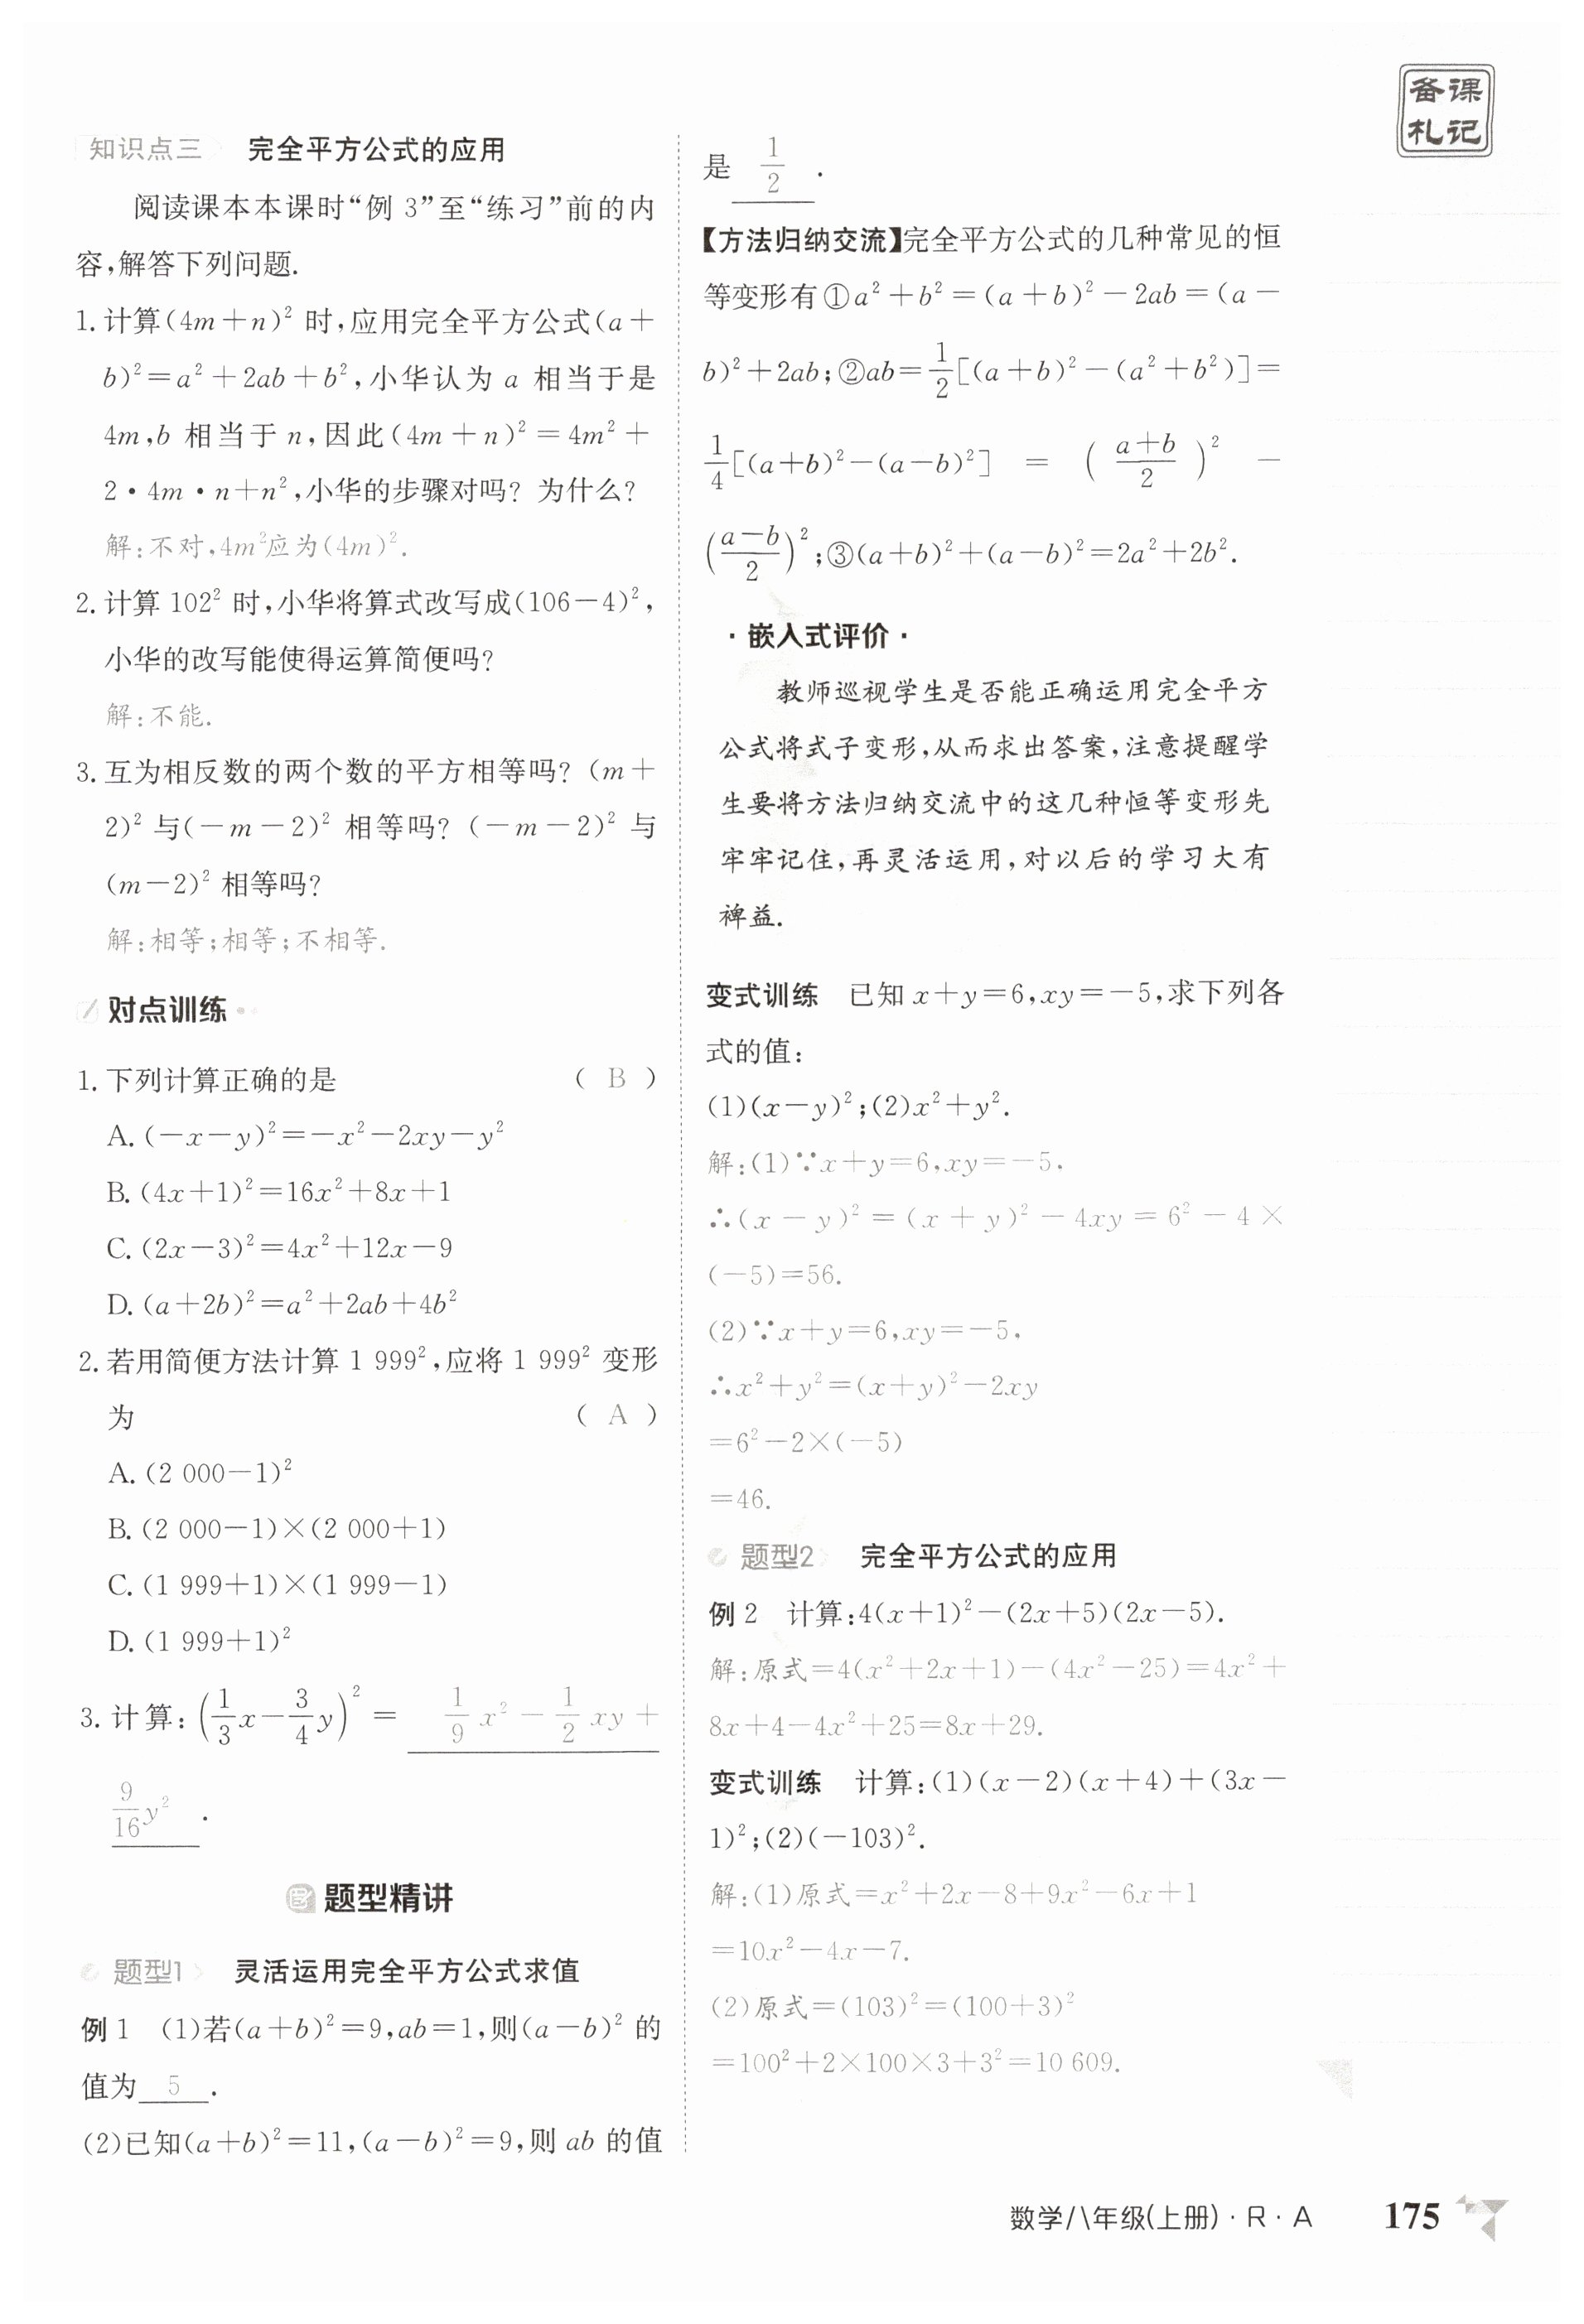 备课
札记
知识点三 完全平方公式的应用
阅读课本本课时“例 3”至“练习”前的内
容,解答下列问题.
1. 计算(4m+n)² 时,应用完全平方公式(a+
b)²=a²+2ab+b²,小华认为 a 相当于是
4m,b 相当于 n,因此(4m+n)²=4m²+
2·4m·n+n²,小华的步骤对吗? 为什么?
解:不对,4m²应为(4m)².
2. 计算 102² 时,小华将算式改写成(106-4)²,
小华的改写能使得运算简便吗?
解:不能.
3. 互为相反数的两个数的平方相等吗? (m+
2)² 与(-m-2)² 相等吗? (-m-2)² 与
(m-2)² 相等吗?
解:相等;相等;不相等.
对点训练
1. 下列计算正确的是 ( B )
A. (-x-y)²=-x²-2xy-y²
B. (4x+1)²=16x²+8x+1
C. (2x-3)²=4x²+12x-9
D. (a+2b)²=a²+2ab+4b²
2. 若用简便方法计算 1 999²,应将 1 999² 变形
为 ( A )
A. (2 000-1)²
B. (2 000-1)×(2 000+1)
C. (1 999+1)×(1 999-1)
D. (1 999+1)²
3. 计算:(1/3 x-3/4 y)²= 1/9 x²-1/2 xy+
9/16 y² .
题型精讲
题型1 灵活运用完全平方公式求值
例 1 (1)若(a+b)²=9,ab=1,则(a-b)² 的
值为 5 .
(2)已知(a+b)²=11,(a-b)²=9,则 ab 的值
是 1/2 .
【方法归纳交流】完全平方公式的几种常见的恒
等变形有①a²+b²=(a+b)²-2ab=(a-
b)²+2ab;②ab=1/2[(a+b)²-(a²+b²)]=
1/4[(a+b)²-(a-b)²] = ( (a+b)/2 )² -
((a-b)/2)²;③(a+b)²+(a-b)²=2a²+2b².
·嵌入式评价·
教师巡视学生是否能正确运用完全平方
公式将式子变形,从而求出答案,注意提醒学
生要将方法归纳交流中的这几种恒等变形先
牢牢记住,再灵活运用,对以后的学习大有
裨益.
变式训练 已知 x+y=6,xy=-5,求下列各
式的值:
(1)(x-y)²;(2)x²+y².
解:(1)∵x+y=6,xy=-5,
∴(x-y)²=(x+y)²-4xy=6²-4×
(-5)=56.
(2)∵x+y=6,xy=-5,
∴x²+y²=(x+y)²-2xy
=6²-2×(-5)
=46.
题型2 完全平方公式的应用
例 2 计算:4(x+1)²-(2x+5)(2x-5).
解:原式=4(x²+2x+1)-(4x²-25)=4x²+
8x+4-4x²+25=8x+29.
变式训练 计算:(1)(x-2)(x+4)+(3x-
1)²;(2)(-103)².
解:(1)原式=x²+2x-8+9x²-6x+1
=10x²-4x-7.
(2)原式=(103)²=(100+3)²
=100²+2×100×3+3²=10 609.
数学/八年级(上册)·R·A 175